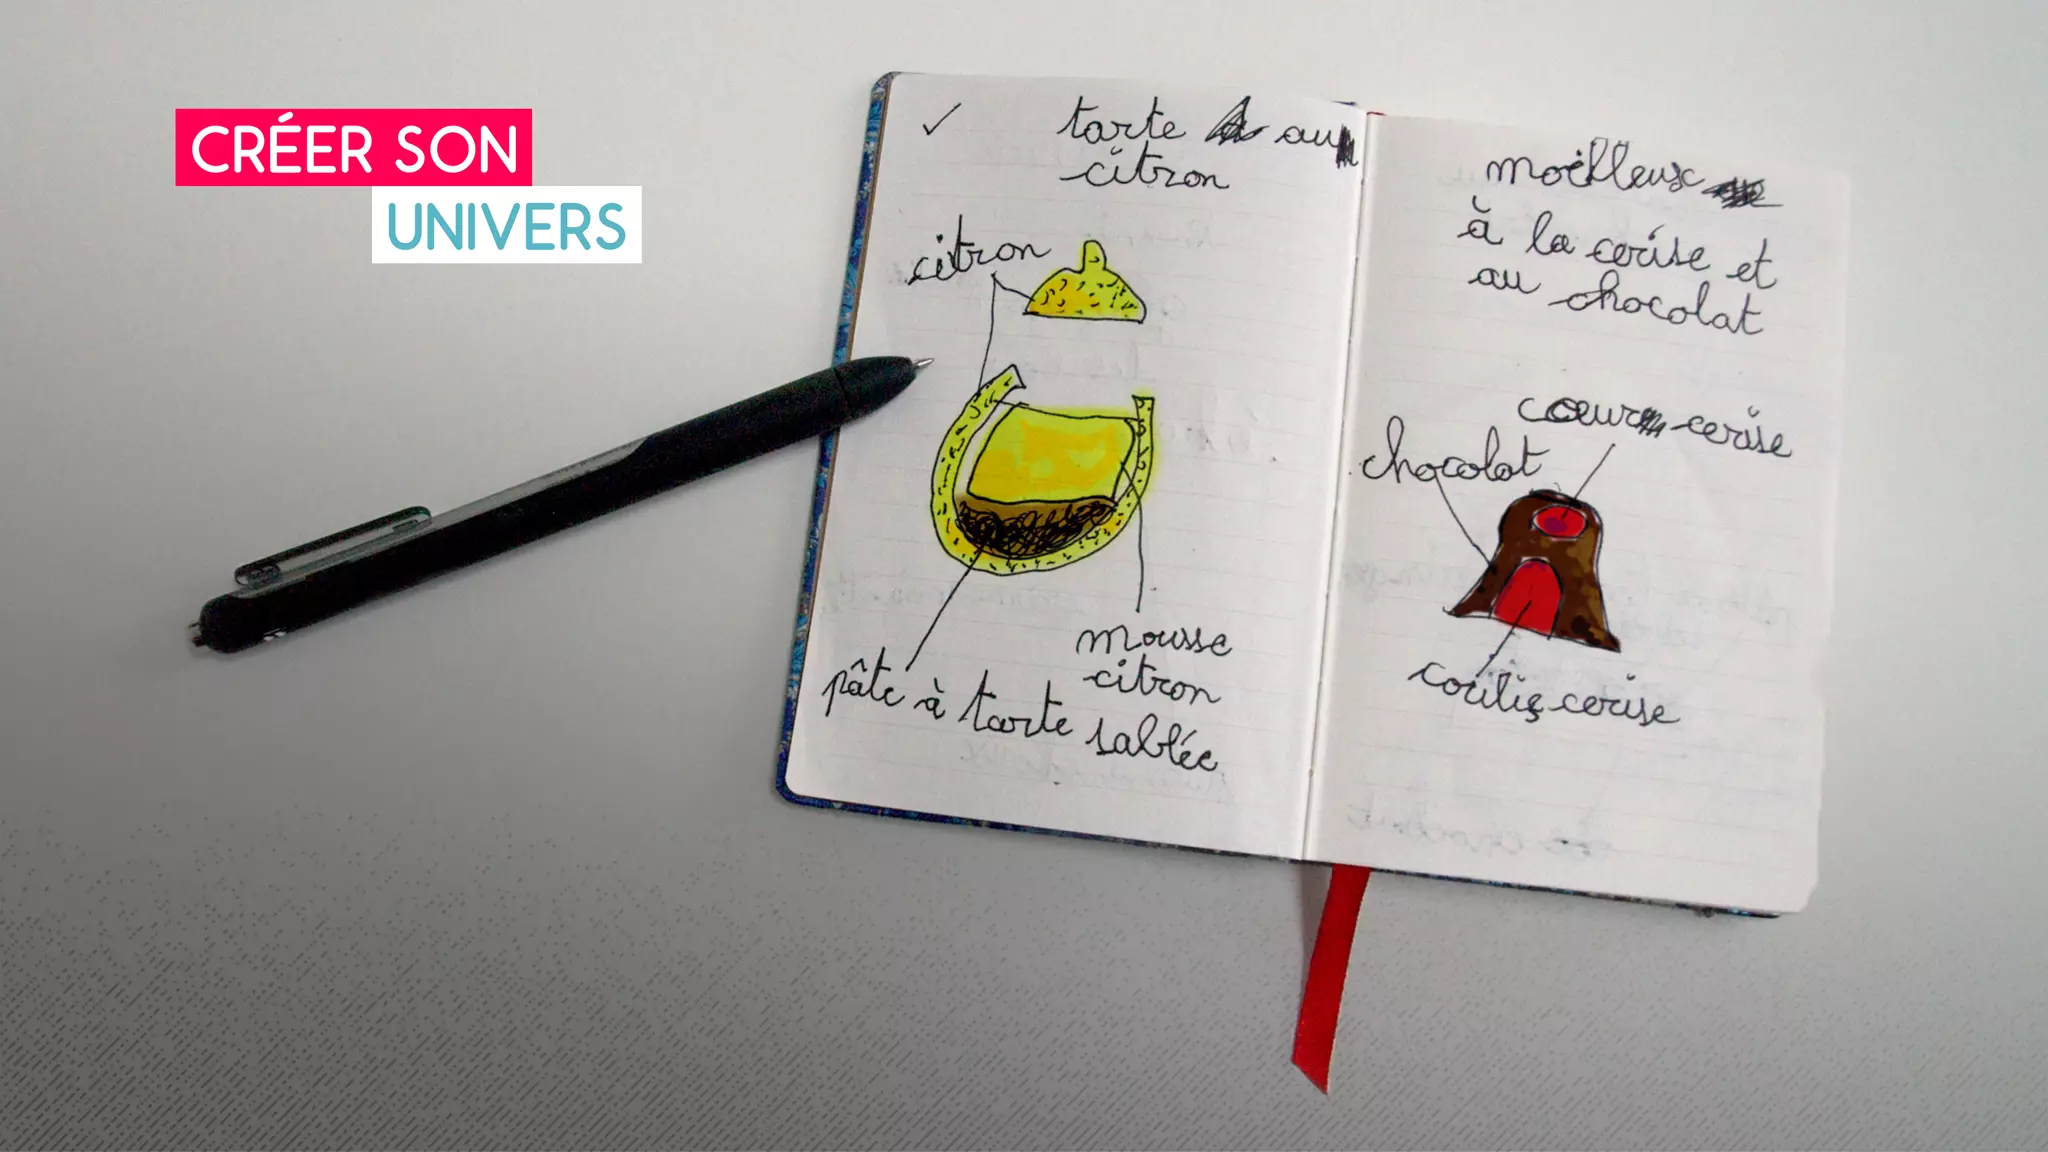 CRÉER SON
UNIVERS
✓ tarte au
citron
citron
mousse
citron
pâte à tarte sablée
moëlleux
à la cerise et
au chocolat
coeur cerise
chocolat
coulis cerise